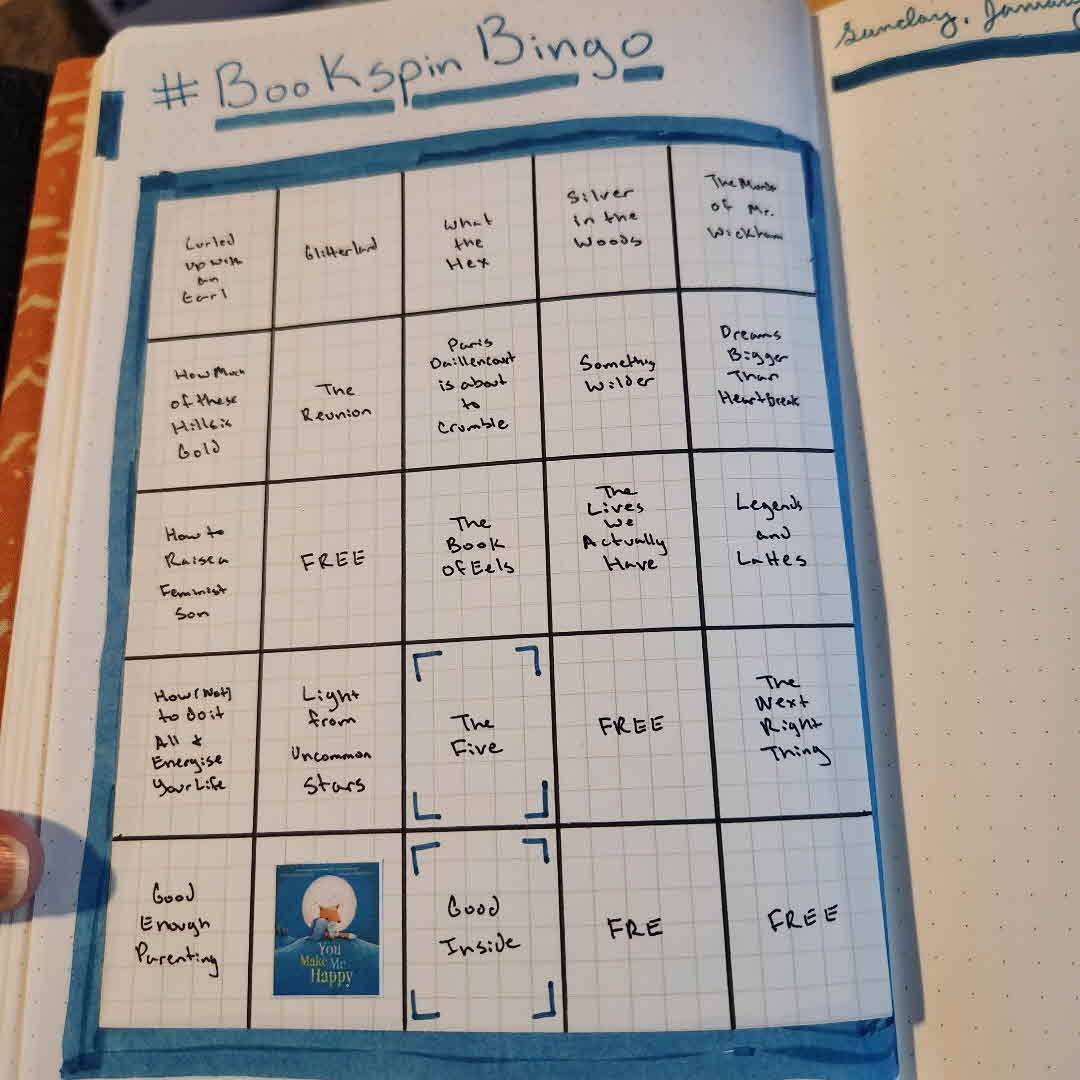 Sunday, Janua
#BookspinBingo
Curled
up with
an
Earl
Glitterland
What
the
Hex
Silver
in the
Woods
The Murder
of Mr.
Wickham
How Much
of these
Hills is
Gold
The
Reunion
Paris
Daillencourt
is about
to
Crumble
Something
Wilder
Dreams
Bigger
Than
Heartbreak
How to
Raise a
Feminist
Son
FREE
The
Book
Of Eels
The
Lives
We
Actually
Have
Legends
and
Lattes
How (Not)
to do it
All &
Energise
Your Life
Light
from
Uncommon
Stars
The
Five
FREE
The
Next
Right
Thing
Good
Enough
Parenting
You
Make Me
Happy
Good
Inside
FRE
FREE